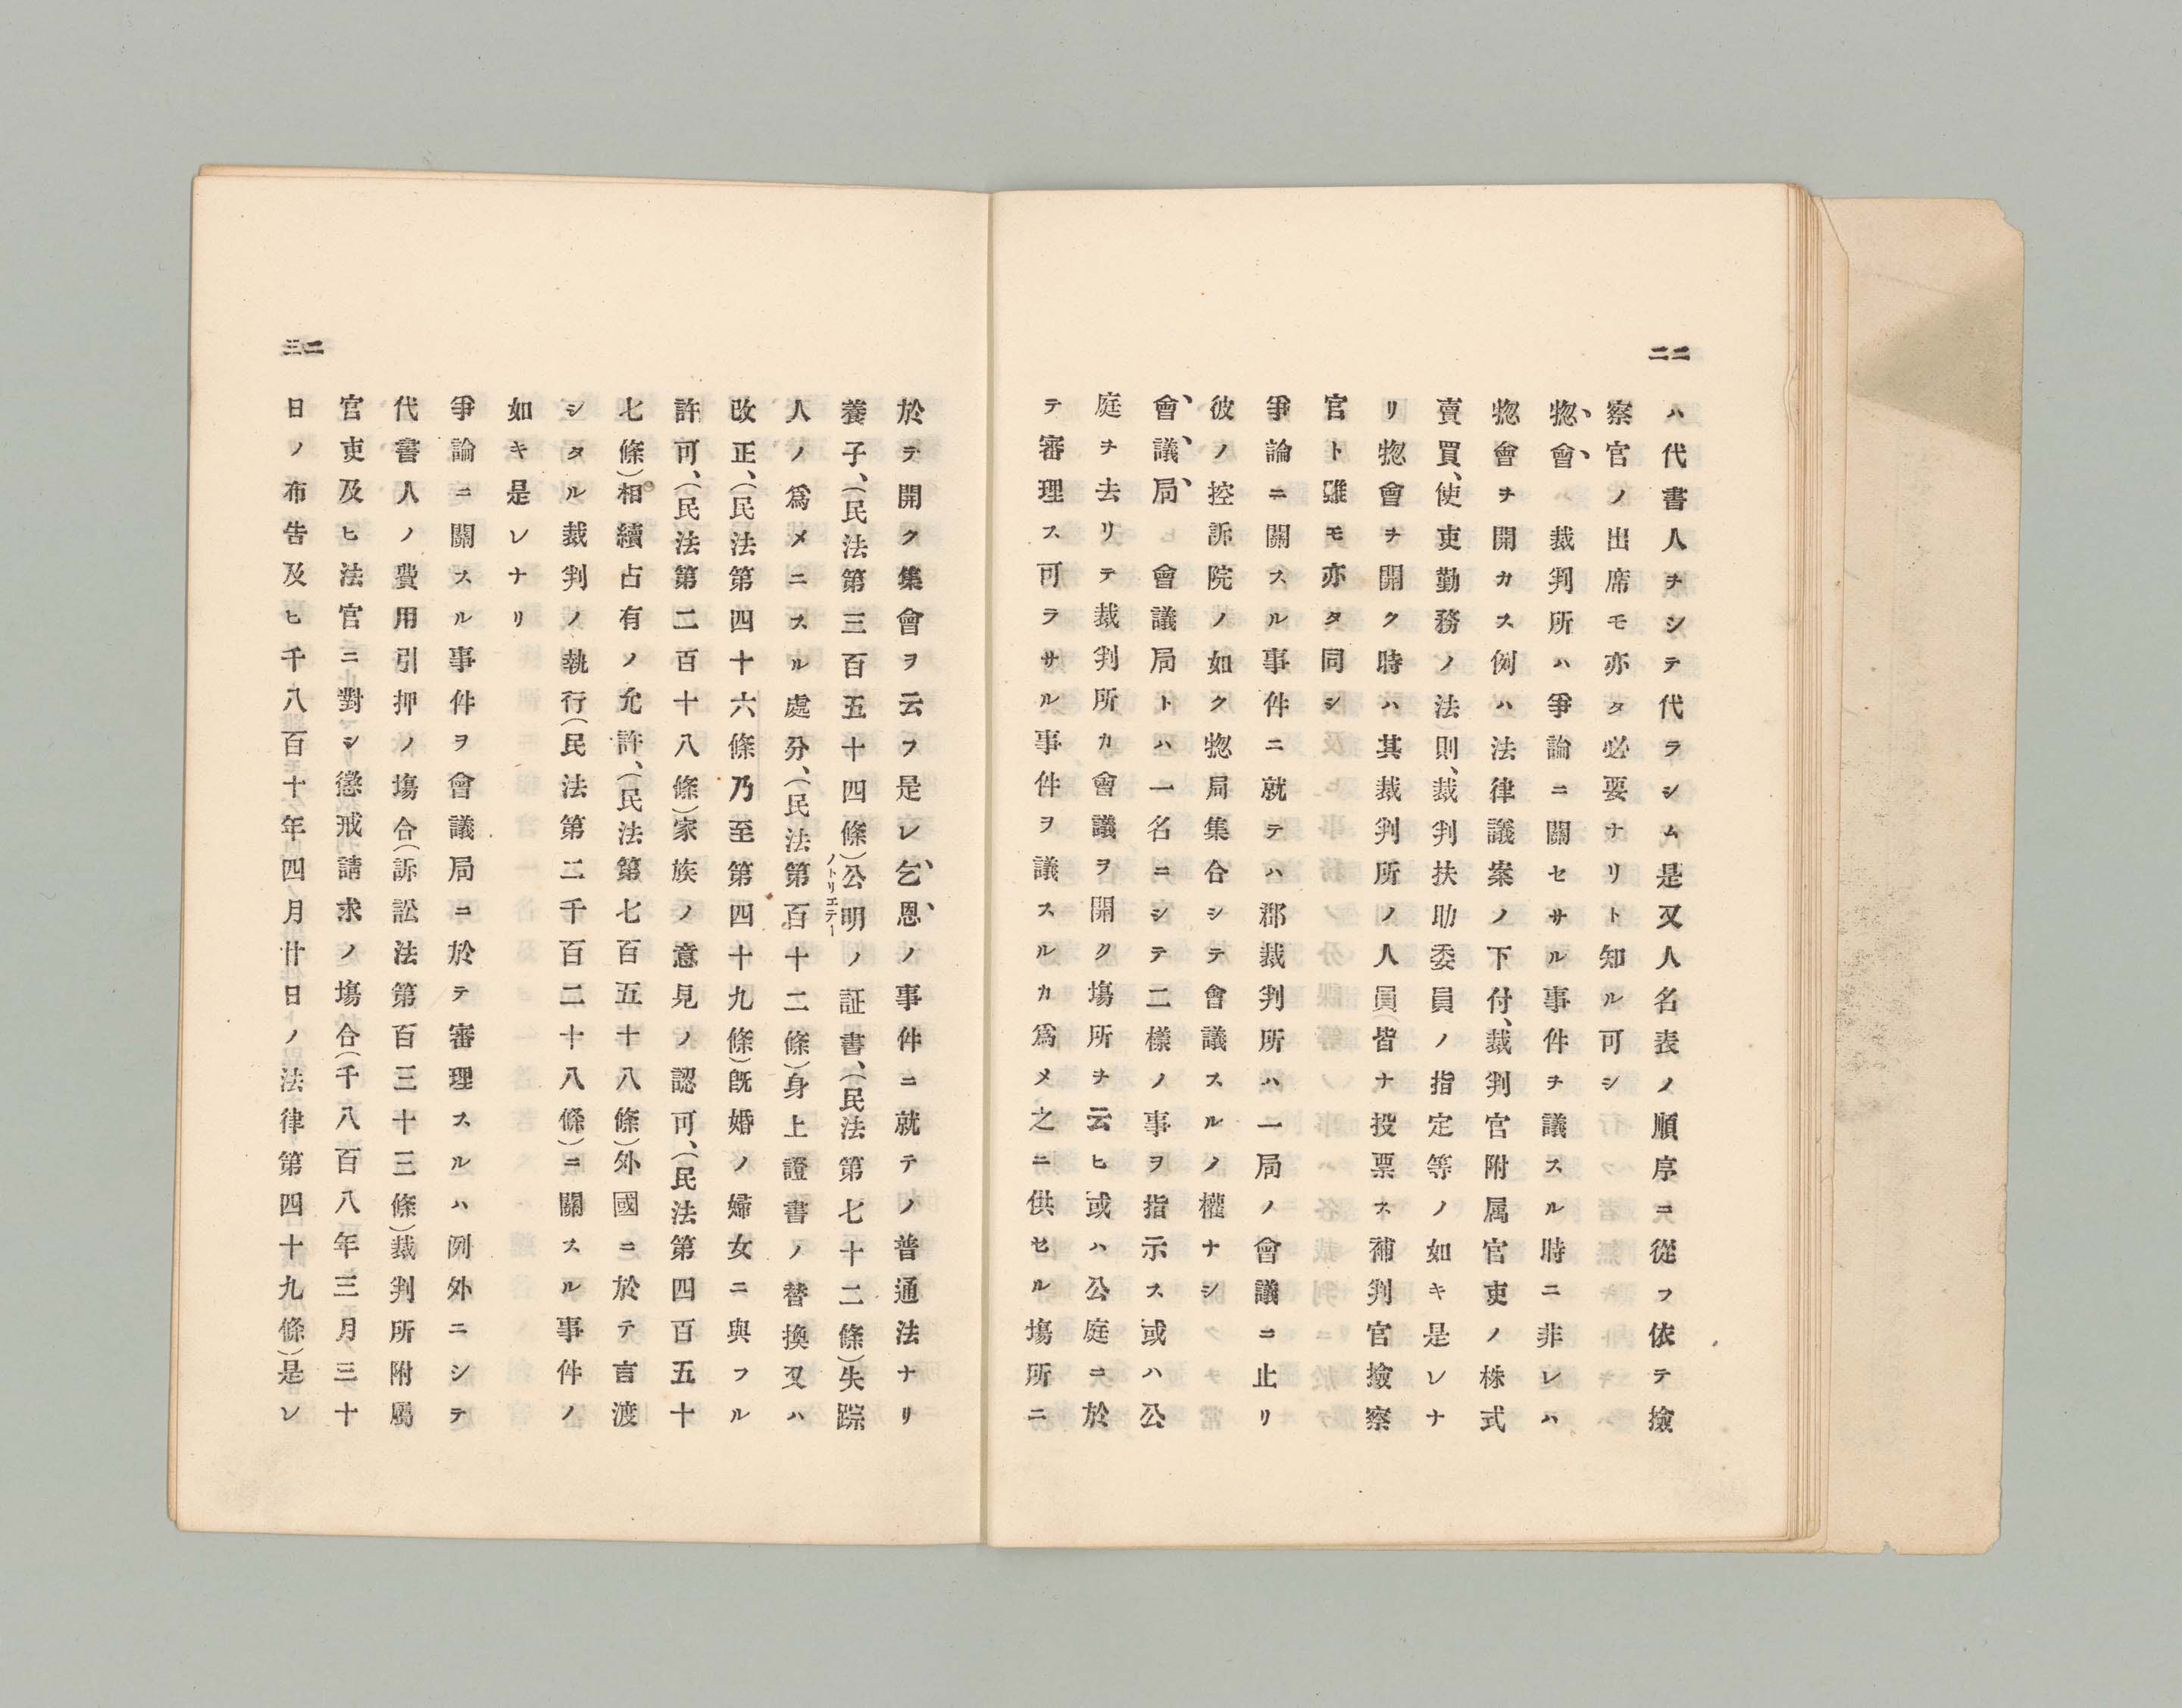 二二
ハ代書人ヲシテ代ラシム是又人名表ノ順序ニ從フ依テ撿
察官ノ出席モ亦タ必要ナリト知ル可シ
惣會ハ裁判所ハ爭論ニ關セサル事件ヲ議スル時ニ非レハ
惣會ヲ開カス例ハ法律議案ノ下付、裁判官附属官吏ノ株式
賣買、使吏勤務ノ法則、裁判扶助委員ノ指定等ノ如キ是レナ
リ惣會ヲ開ク時ハ其裁判所ノ人員皆ナ投票ス補判官撿察
官ト雖モ亦タ同シ
爭論ニ關スル事件ニ就テハ郡裁判所ハ一局ノ會議ニ止リ
彼ノ控訴院ノ如ク惣局集合シテ會議スルノ權ナシ
會議局 會議局トハ一名ニシテ二樣ノ事ヲ指示ス或ハ公
庭ヲ去リテ裁判所カ會議ヲ開ク塲所ヲ云ヒ或ハ公庭ニ於
テ審理ス可ラサル事件ヲ議スルカ爲メ之ニ供セル塲所ニ
於テ開ク集會ヲ云フ是レ乞恩ノ事件ニ就テノ普通法ナリ
養子、(民法第三百五十四條)公明ノ証書、(民法第七十二條)失踪
ノトリエテー
人ノ爲メニスル處分、(民法第百十二條)身上證書ノ替換又ハ
改正、(民法第四十六條乃至第四十九條)既婚ノ婦女ニ與フル
許可、(民法第二百十八條)家族ノ意見ノ認可、(民法第四百五十
七條)相續占有ノ允許、(民法第七百五十八條)外國ニ於テ言渡
シタル裁判ノ執行(民法第二千百二十八條)ニ關スル事件ノ
如キ是レナリ
爭論ニ關スル事件ヲ會議局ニ於テ審理スルハ例外ニシテ
代書人ノ費用引押ノ塲合(訴訟法第百三十三條)裁判所附屬
官吏及ヒ法官ニ對シ懲戒請求ノ塲合(千八百八年三月三十
日ノ布告及ヒ千八百十年四月廿日ノ法律第四十九條)是レ
二三